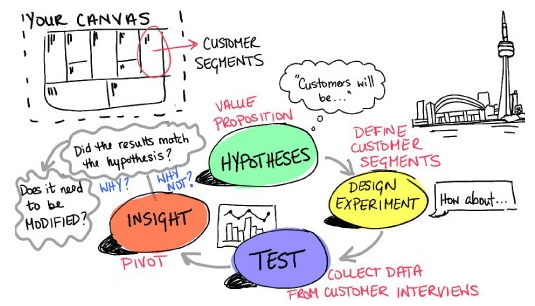 YOUR CANVAS
CUSTOMER
SEGMENTS
"Customers will
be..."
VALUE
PROPOSITION
HYPOTHESES
DEFINE
CUSTOMER
SEGMENTS
Did the results match
the hypothesis?
WHY?
WHY
NOT?
Does it need
to be
MODIFIED?
DESIGN
EXPERIMENT
How about...
INSIGHT
PIVOT
TEST
COLLECT DATA
FROM CUSTOMER INTERVIEWS